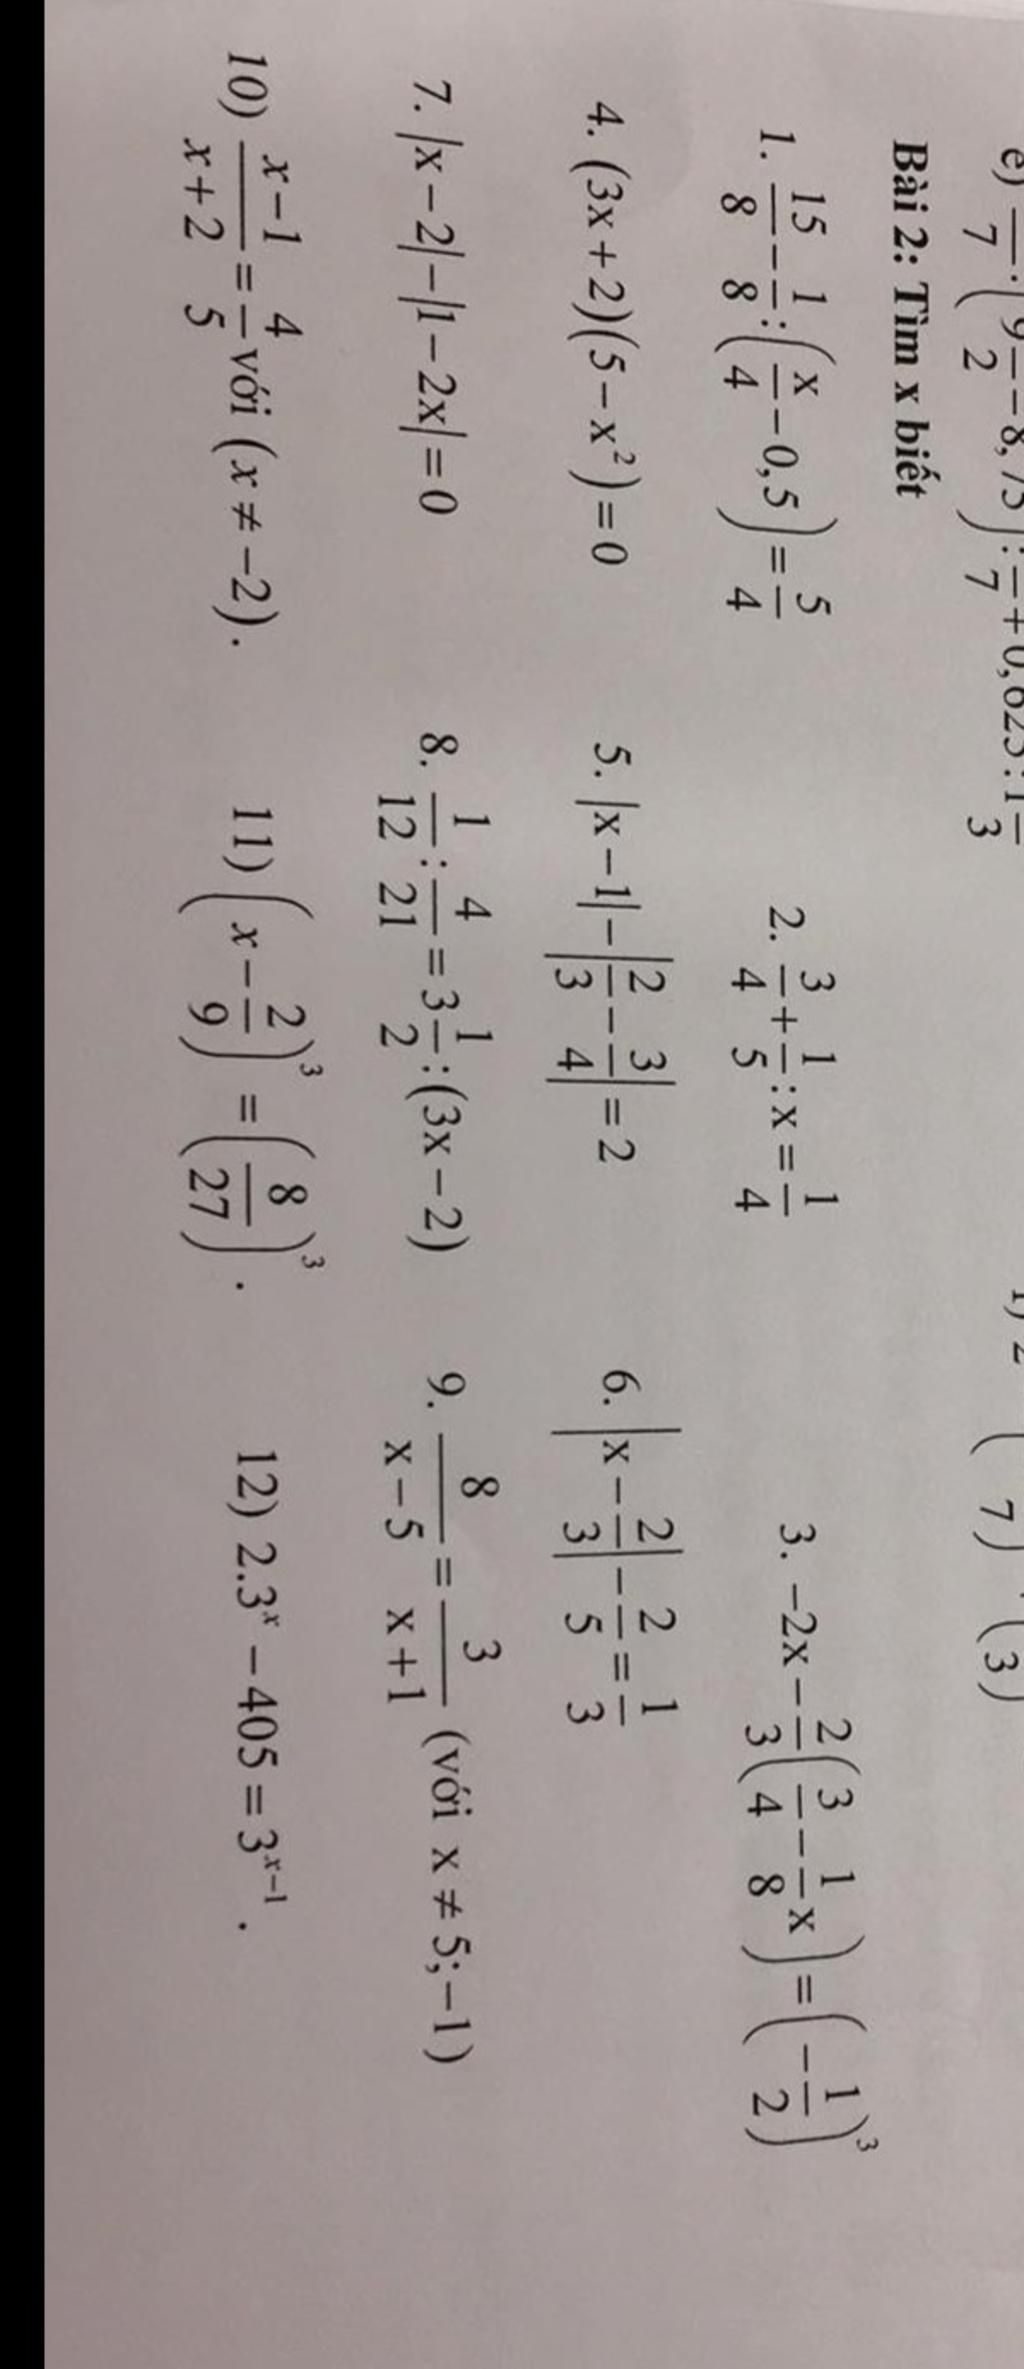 e) /7 · (9/2 − 8,75) : /7 + 0,625 : 1 /3
Bài 2: Tìm x biết
1. 15/8 − 1/8 : (x/4 − 0,5) = 5/4 2. 3/4 + 1/5 : x = 1/4 3. −2x − 2/3 (3/4 − 1/8 x) = (−1/2)³
4. (3x + 2)(5 − x²) = 0 5. |x − 1| − |2/3 − 3/4| = 2 6. |x − 2/3| − 2/5 = 1/3
7. |x − 2| − |1 − 2x| = 0 8. 1/12 : 4/21 = 3 1/2 : (3x − 2) 9. 8/(x − 5) = 3/(x + 1) (với x ≠ 5; −1)
10) (x − 1)/(x + 2) = 4/5 với (x ≠ −2). 11) (x − 2/9)³ = (8/27)³. 12) 2.3ˣ − 405 = 3ˣ⁻¹.